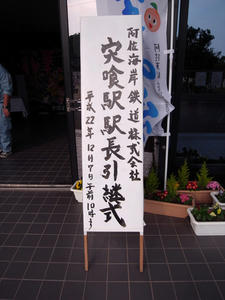 阿佐海岸鉄道株式会社
宍喰駅駅長引継式
平成22年12月7日午前10時